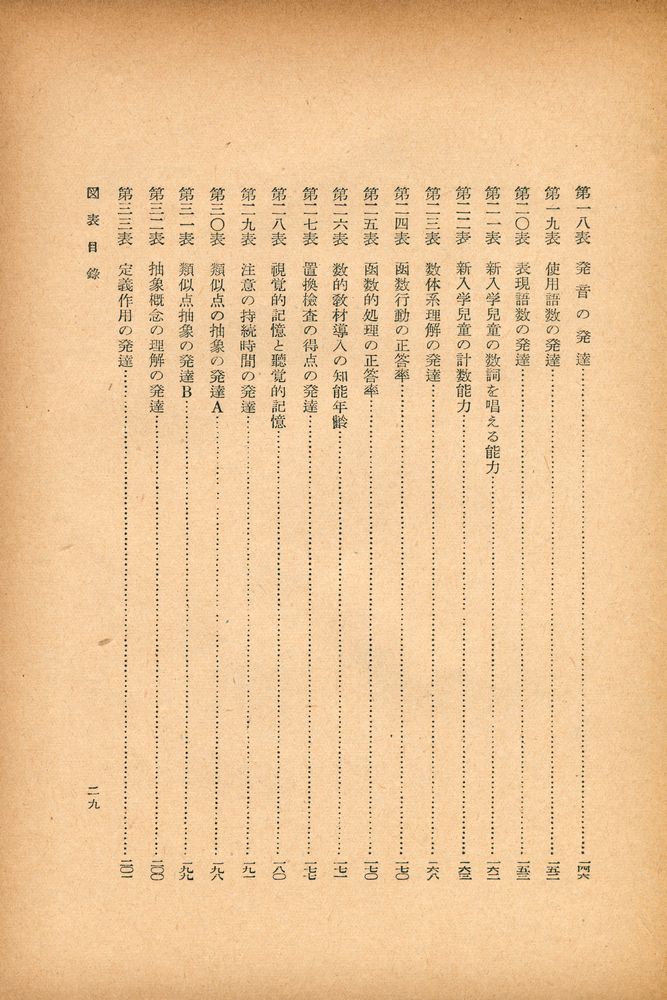 第一八表 発音の発達……一四六
第一九表 使用語数の発達……一五二
第二〇表 表現語数の発達……一五三
第二一表 新入学兒童の数詞を唱える能力……一六二
第二二表 新入学兒童の計数能力……一六三
第二三表 数体系理解の発達……一六八
第二四表 函数行動の正答率……一七〇
第二五表 函数的処理の正答率……一七〇
第二六表 数的教材導入の知能年齡……一七一
第二七表 置換檢査の得点の発達……一七七
第二八表 視覚的記憶と聽覚的記憶……一八〇
第二九表 注意の持続時間の発達……一九一
第三〇表 類似点の抽象の発達A……一九八
第三一表 類似点抽象の発達B……一九九
第三二表 抽象概念の理解の発達……二〇〇
第三三表 定義作用の発達……二〇一
図表目錄
二九